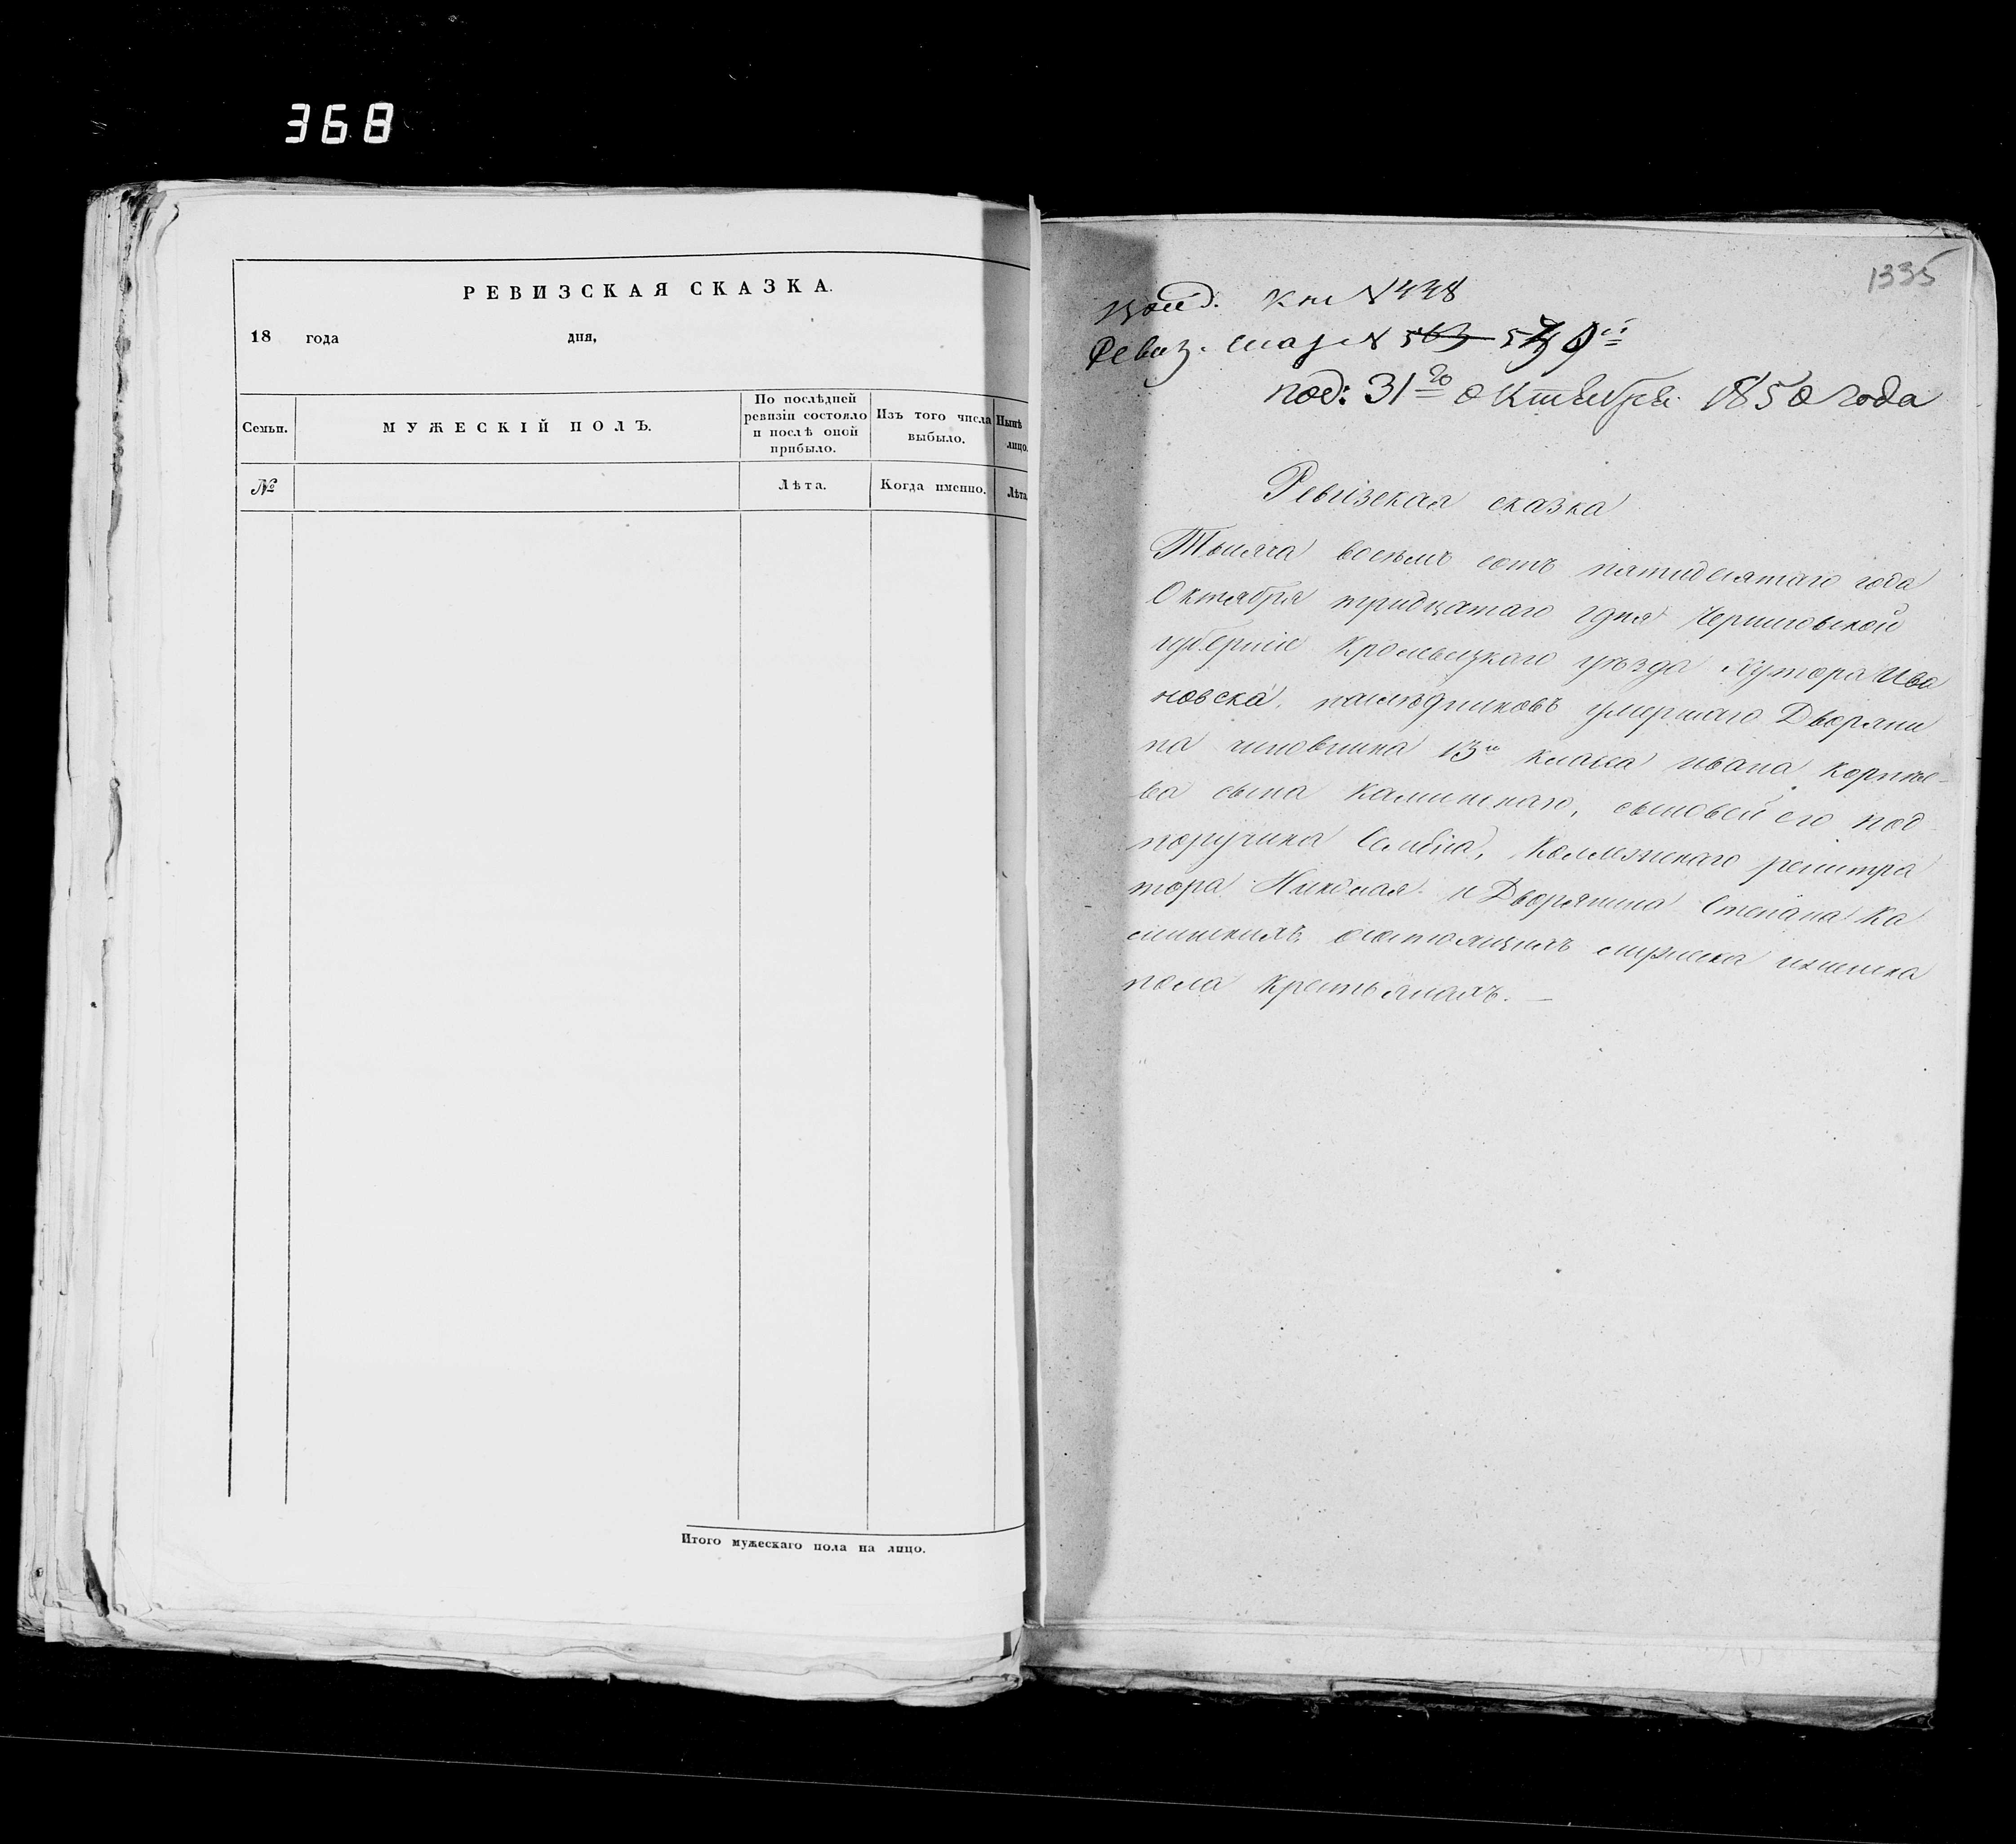 368
РЕВИЗСКАЯ СКАЗКА.
18 года дня,
Семьи.
МУЖЕСКІЙ ПОЛЪ.
По послѣдней ревизіи состояло и послѣ оной прибыло.
Изъ того числа выбыло.
Нынѣ лицо.
№
Лѣта.
Когда именно.
Лѣта
Итого мужескаго пола на лицо.
1335
Кн №
Ревиз. сказ №
под: 31го Октября 1850 года
Ревизская сказка
Тысяча восемъ сотъ пятидесятаго года
Октября тридцатаго дня Черниговской
губерніи Кролевецкого уѣзда хутора Ива
новска, наслѣдниковъ умершаго Дворяни
на чиновника 13го класса Ивана Корнѣе-
ва сына Каминскаго, сыновей его под
поручика Коллежскаго регистра
тора Николая и Дворянина Степана Ка
минскихъ, о состоящихъ мужеска и женска
пола крестьянахъ. —